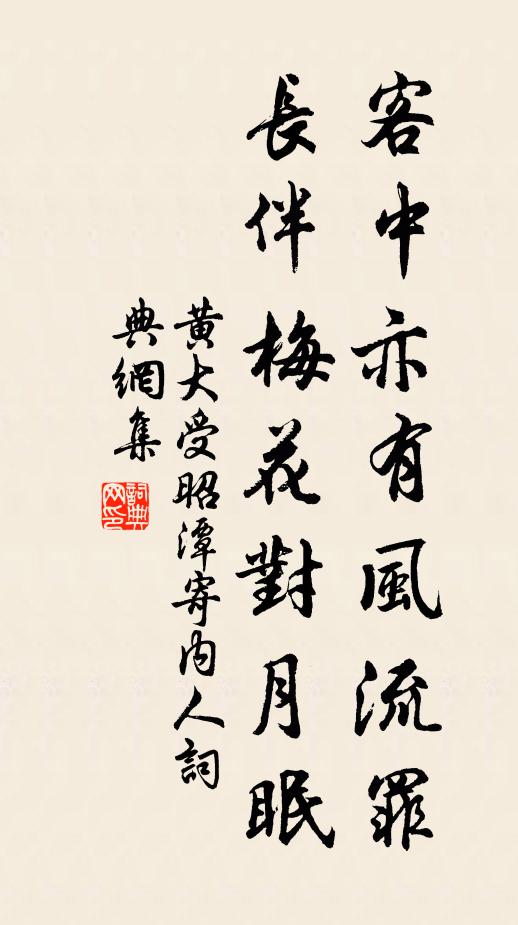 客中亦有風流罪
長伴梅花對月眠
黄大受昭潭寄内人詞
典網集
詞典
网印